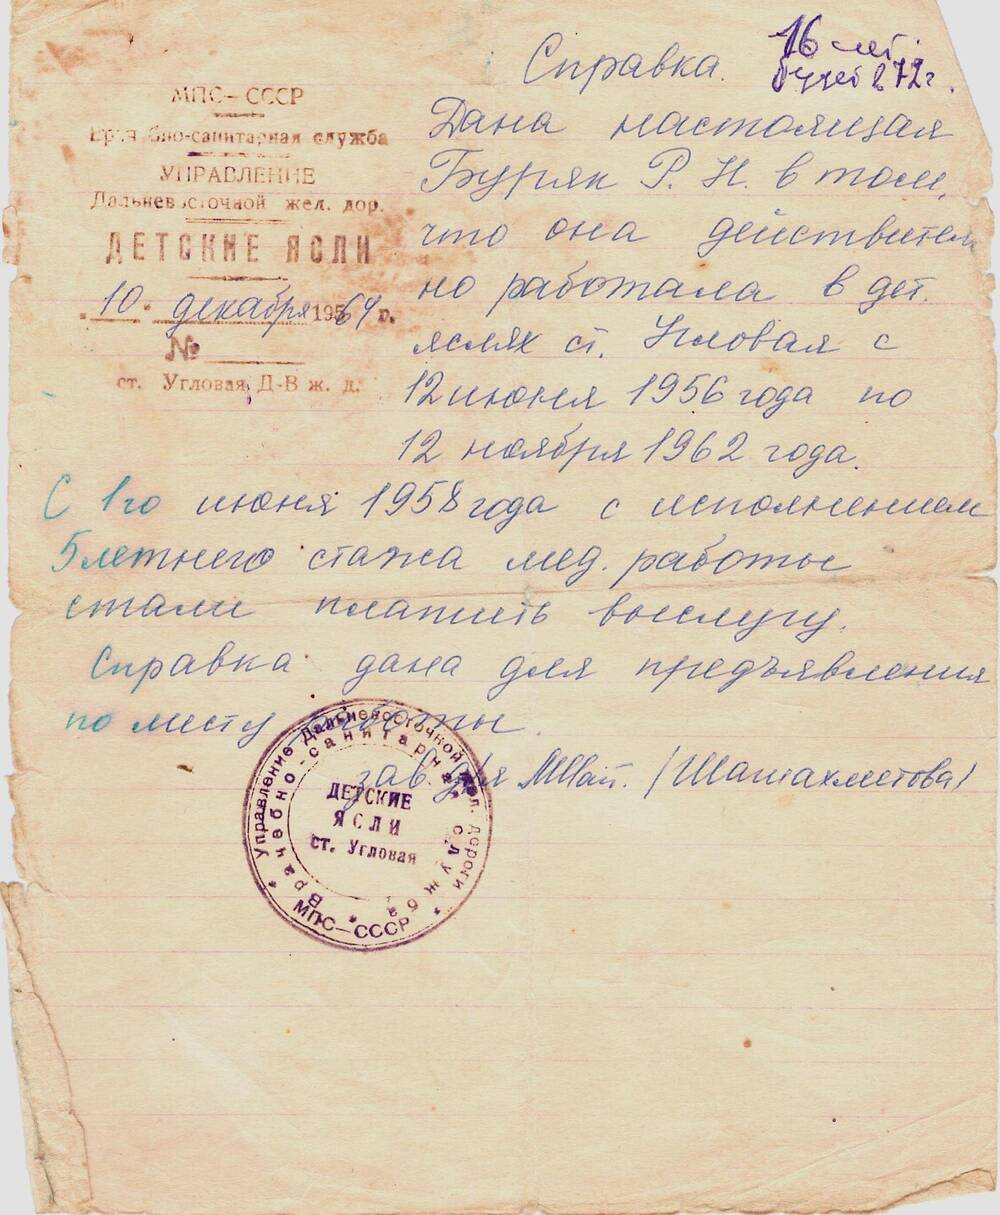 16 лет
будет в 72 г.
Справка.
МПС-СССР
Врачебно-санитарная служба
УПРАВЛЕНИЕ
Дальневосточной жел. дор.
ДЕТСКИЕ ЯСЛИ
10. декабря 1964 г.
№
ст. Угловая Д-В ж. д.
Дана настоящая
Буряк Р. Н. в том,
что она действител
но работала в дет.
яслях ст. Угловая с
12 июня 1956 года по
12 ноября 1962 года.
С 1го июня 1958 года с исполнением
5 летнего стажа мед. работы
стали платить выслугу.
Справка дана для предъявления
по месту работы.
зав. д/я (Шаихметова)
Управление Дальневосточной жел. дороги
Врачебно-санитарная служба
ДЕТСКИЕ
ЯСЛИ
ст. Угловая
МПС-СССР